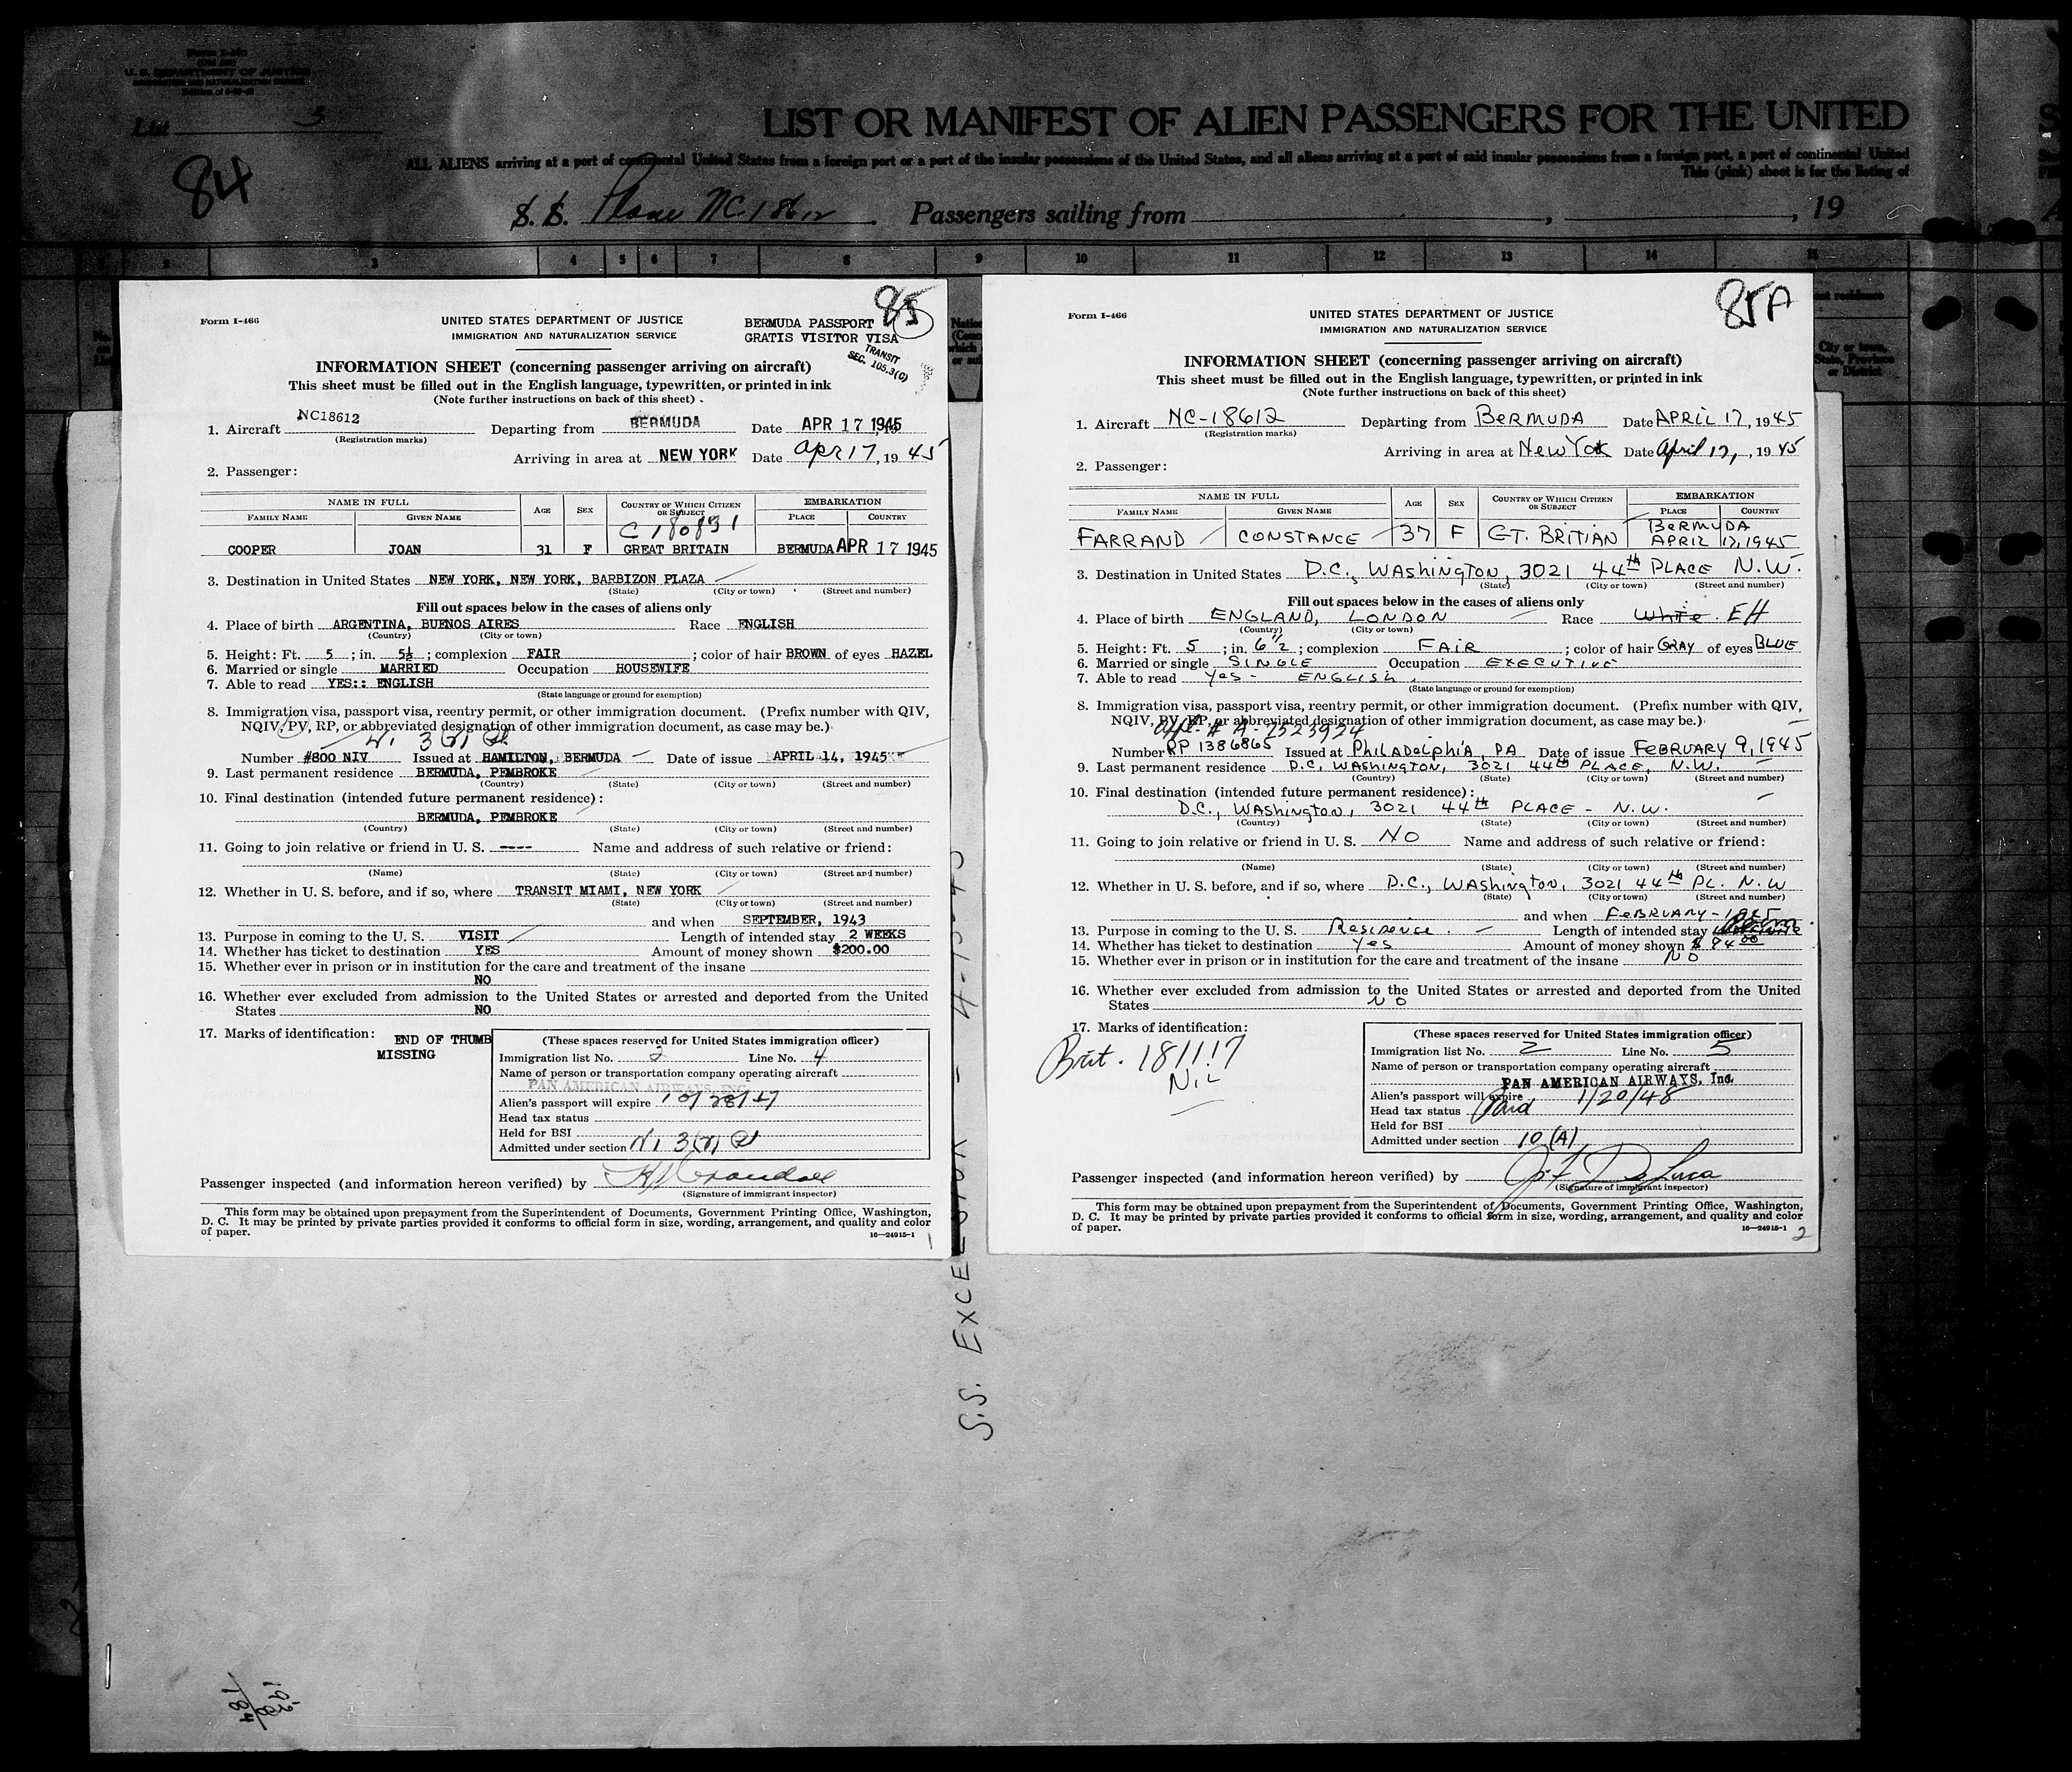 Form I-460
U. S. DEPARTMENT OF JUSTICE
IMMIGRATION AND NATURALIZATION SERVICE
List 3
84
LIST OR MANIFEST OF ALIEN PASSENGERS FOR THE UNITED
ALL ALIENS arriving at a port of continental United States from a foreign port or a port of the insular possessions of the United States, and all aliens arriving at a port of said insular possessions from a foreign port, a port of continental United
This (pink) sheet is for the listing of
S. S. Plane NC 18612 Passengers sailing from , , 19
2 3 4 5 6 7 8 9 10 11 12 13 14 15
85
Form I-466
UNITED STATES DEPARTMENT OF JUSTICE
IMMIGRATION AND NATURALIZATION SERVICE
BERMUDA PASSPORT
GRATIS VISITOR VISA
TRANSIT
SEC. 105.3(C)
INFORMATION SHEET (concerning passenger arriving on aircraft)
This sheet must be filled out in the English language, typewritten, or printed in ink
(Note further instructions on back of this sheet)
1. Aircraft NC18612 Departing from BERMUDA Date APR 17 1945
(Registration marks)
Arriving in area at NEW YORK Date Apr 17, 1945
2. Passenger:
NAME IN FULL AGE SEX COUNTRY OF WHICH CITIZEN OR SUBJECT EMBARKATION
FAMILY NAME GIVEN NAME PLACE COUNTRY
C 180831
COOPER JOAN 31 F GREAT BRITAIN BERMUDA APR 17 1945
3. Destination in United States NEW YORK, NEW YORK, BARBIZON PLAZA
(State) (City or town) (Street and number)
Fill out spaces below in the cases of aliens only
4. Place of birth ARGENTINA, BUENOS AIRES Race ENGLISH
(Country) (City or town)
5. Height: Ft. 5 ; in. 5½ ; complexion FAIR ; color of hair BROWN of eyes HAZEL
6. Married or single MARRIED Occupation HOUSEWIFE
7. Able to read YES:: ENGLISH
(State language or ground for exemption)
8. Immigration visa, passport visa, reentry permit, or other immigration document. (Prefix number with QIV,
NQIV, PV, RP, or abbreviated designation of other immigration document, as case may be.)
Number #800 NIV Issued at HAMILTON, BERMUDA Date of issue APRIL 14, 1945
9. Last permanent residence BERMUDA, PEMBROKE
(Country) (State) (City or town) (Street and number)
10. Final destination (intended future permanent residence):
BERMUDA, PEMBROKE
(Country) (State) (City or town) (Street and number)
11. Going to join relative or friend in U. S. ---- Name and address of such relative or friend:
(Name) (State) (City or town) (Street and number)
12. Whether in U. S. before, and if so, where TRANSIT MIAMI, NEW YORK
(State) (City or town) (Street and number)
and when SEPTEMBER, 1943
13. Purpose in coming to the U. S. VISIT Length of intended stay 2 WEEKS
14. Whether has ticket to destination YES Amount of money shown $200.00
15. Whether ever in prison or in institution for the care and treatment of the insane
NO
16. Whether ever excluded from admission to the United States or arrested and deported from the United
States NO
17. Marks of identification: END OF THUMB
MISSING
(These spaces reserved for United States immigration officer)
Immigration list No. 2 Line No. 4
Name of person or transportation company operating aircraft
PAN AMERICAN AIRWAYS, INC.
Alien's passport will expire
Head tax status
Held for BSI
Admitted under section
Passenger inspected (and information hereon verified) by
(Signature of immigrant inspector)
This form may be obtained upon prepayment from the Superintendent of Documents, Government Printing Office, Washington,
D. C. It may be printed by private parties provided it conforms to official form in size, wording, arrangement, and quality and color
of paper.
16—24915-1
1
S.S. EXCE
85A
Form I-466
UNITED STATES DEPARTMENT OF JUSTICE
IMMIGRATION AND NATURALIZATION SERVICE
INFORMATION SHEET (concerning passenger arriving on aircraft)
This sheet must be filled out in the English language, typewritten, or printed in ink
(Note further instructions on back of this sheet)
1. Aircraft NC-18612 Departing from BERMUDA Date APRIL 17, 1945
(Registration marks)
Arriving in area at New York Date April 17, 1945
2. Passenger:
NAME IN FULL AGE SEX COUNTRY OF WHICH CITIZEN OR SUBJECT EMBARKATION
FAMILY NAME GIVEN NAME PLACE COUNTRY
FARRAND CONSTANCE 37 F GT. BRITIAN BERMUDA
APRIL 17, 1945
3. Destination in United States D.C., WAShINgTON, 3021 44th PLACE N.W.
(State) (City or town) (Street and number)
Fill out spaces below in the cases of aliens only
4. Place of birth ENGLAND, LONDON Race White. EH
(Country) (City or town)
5. Height: Ft. 5 ; in. 6½ ; complexion FAIR ; color of hair GRAY of eyes BLUE
6. Married or single SINGLE Occupation EXECUTIVE
7. Able to read Yes - ENGLISH.
(State language or ground for exemption)
8. Immigration visa, passport visa, reentry permit, or other immigration document. (Prefix number with QIV,
NQIV, PV, RP, or abbreviated designation of other immigration document, as case may be.)
# A-7523924
Number RP 1386865 Issued at PhiLADElphiA, PA Date of issue FEBRUARY 9, 1945
9. Last permanent residence D.C. WAShINgTON, 3021 44th PLACE, N.W.
(Country) (State) (City or town) (Street and number)
10. Final destination (intended future permanent residence):
D.C., WAShINgTON, 3021 44th PLACE - N.W.
(Country) (State) (City or town) (Street and number)
11. Going to join relative or friend in U. S. NO Name and address of such relative or friend:
(Name) (State) (City or town) (Street and number)
12. Whether in U. S. before, and if so, where D.C., WAShINgTON, 3021 44th PL. N.W
(State) (City or town) (Street and number)
and when FEBRUARY - 1945
13. Purpose in coming to the U. S. Residence. Length of intended stay
14. Whether has ticket to destination Yes Amount of money shown $ 94.00
15. Whether ever in prison or in institution for the care and treatment of the insane NO
16. Whether ever excluded from admission to the United States or arrested and deported from the United
States NO
17. Marks of identification:
Brit. 181117
Nil
(These spaces reserved for United States immigration officer)
Immigration list No. 2 Line No. 5
Name of person or transportation company operating aircraft
PAN AMERICAN AIRWAYS, Inc.
Alien's passport will expire 1/20/48
Head tax status Paid
Held for BSI
Admitted under section 10 (A)
Passenger inspected (and information hereon verified) by
(Signature of immigrant inspector)
This form may be obtained upon prepayment from the Superintendent of Documents, Government Printing Office, Washington,
D. C. It may be printed by private parties provided it conforms to official form in size, wording, arrangement, and quality and color
of paper.
16—24915-1
2